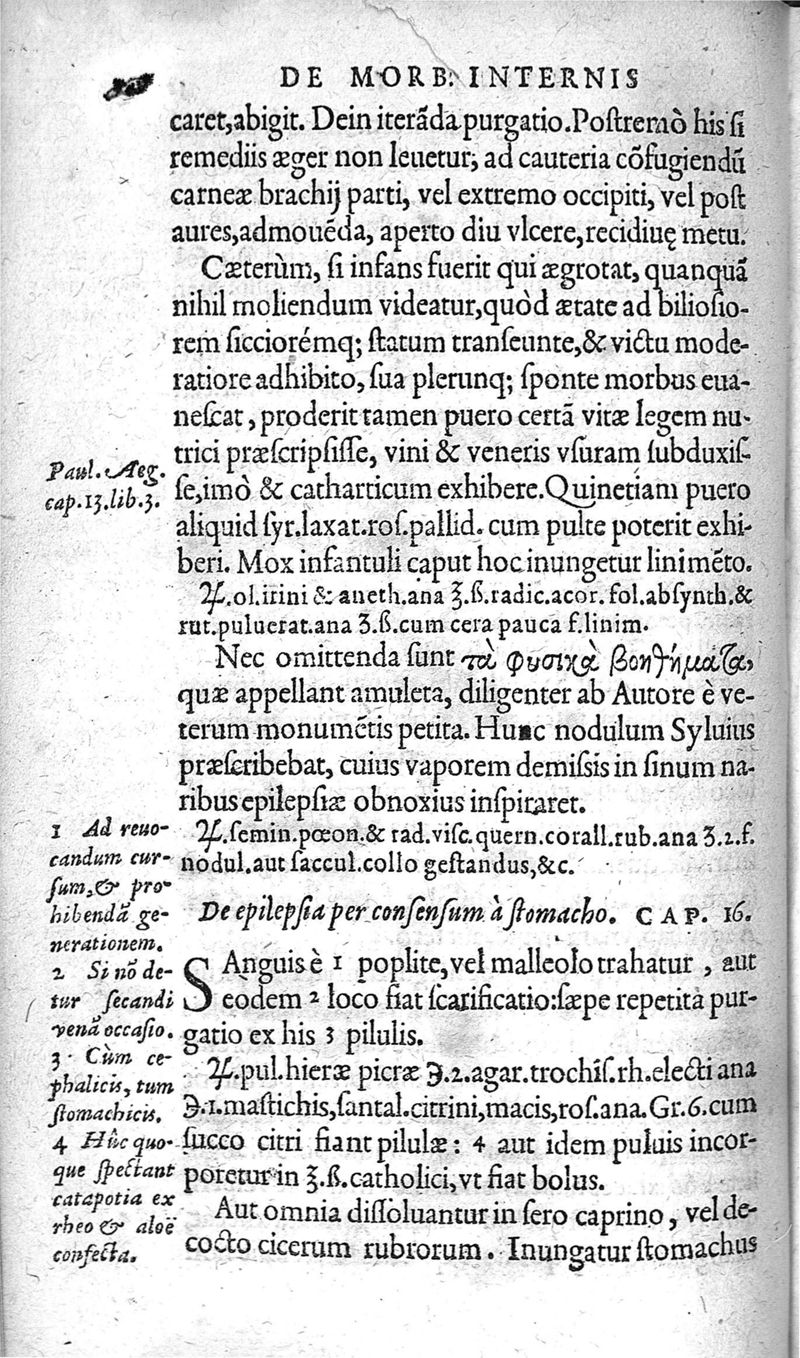 DE MORB. INTERNIS
caret,abigit. Dein iterãda purgatio.Postremò his si
remediis æger non leuetur, ad cauteria cõfugiendũ
carneæ brachij parti, vel extremo occipiti, vel post
aures,admouẽda, aperto diu vlcere,recidiuę metu.
Cæterùm, si infans fuerit qui ægrotat, quanquã
nihil moliendum videatur,quòd ætate ad biliosio-
rem sicciorémq; statum transeunte,& victu mode-
ratiore adhibito, sua plerunq; sponte morbus eua-
nescat, proderit tamen puero certã vitæ legem nu-
trici præscripsisse, vini & veneris vsuram subduxis-
Paul. Aeg.
cap.13.lib.3.
se,imò & catharticum exhibere.Quinetiam puero
aliquid syr.laxat.ros.pallid. cum pulte poterit exhi-
beri. Mox infantuli caput hoc inungetur linimẽto.
℞.ol.irini & aneth.ana ℥.ß.radic.acor. fol.absynth.&
rut.puluerat.ana ʒ.ß.cum cera pauca f.linim.
Nec omittenda sunt τὰ φυσικὰ βοηθήματα,
quæ appellant amuleta, diligenter ab Autore è ve-
terum monumẽtis petita. Hunc nodulum Syluius
præscribebat, cuius vaporem demissis in sinum na-
ribus epilepsiæ obnoxius inspiraret.
℞.semin.pœon.& rad.visc.quern.corall.rub.ana ʒ.2.f.
nodul.aut saccul.collo gestandus,&c.
De epilepsia per consensum à stomacho. CAP. 16.
1 Ad reuo-
candum cur-
sum,& pro-
hibendã ge-
nerationem.
2 Si nõ de-
tur secandi
venã occasio.
3 Cùm ce-
phalicis, tum
stomachicis.
4 Hûc quo-
que spectant
catapotia ex
rheo & aloë
confecta.
SAnguis è 1 poplite,vel malleolo trahatur , aut
eodem 2 loco fiat scarificatio:sæpe repetita pur-
gatio ex his 3 pilulis.
℞.pul.hieræ picræ ℈.2.agar.trochis.rh.electi ana
℈.1.mastichis,santal.citrini,macis,ros.ana.Gr.6.cum
succo citri fiant pilulæ: 4 aut idem puluis incor-
poretur in ℥.ß.catholici,vt fiat bolus.
Aut omnia dissoluantur in sero caprino, vel de-
cocto cicerum rubrorum. Inungatur stomachus